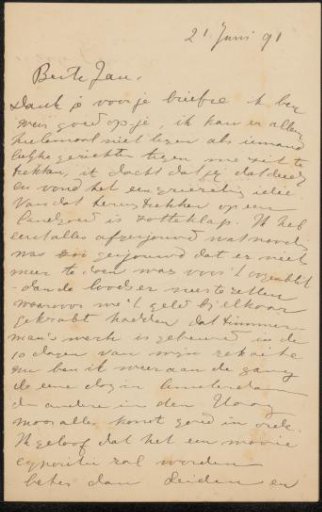 21 Juni 91
Beste Jan.
Dank je voor je briefje ik ben
weer goed op je, ik kan er alleen
heelemaal niet tegen als iemand
lelijke gezichten tegen me zit te
trekken, ik dacht dat jij dat deed
en vond het een griezelig idee
van dat terug trekken op een
landgoed is rotteklap. Ik heb
eerst alles afgejouwd wat noodig
was en gejouwd dat er niet
meer te doen was voor 't
dan de boel er neer te zetten
waarvoor we 't geld bij elkaar
gekrabt hadden dat timmer-
man's werk is gebeurd in de
10 dagen van mijn ziekzite
nu ben ik weer aan de gang
de eene dag in Amsterdam
de andere in den Haag
maar alles komt goed in orde.
Ik geloof dat het een mooie
expositie zal worden
beter dan Leiden en